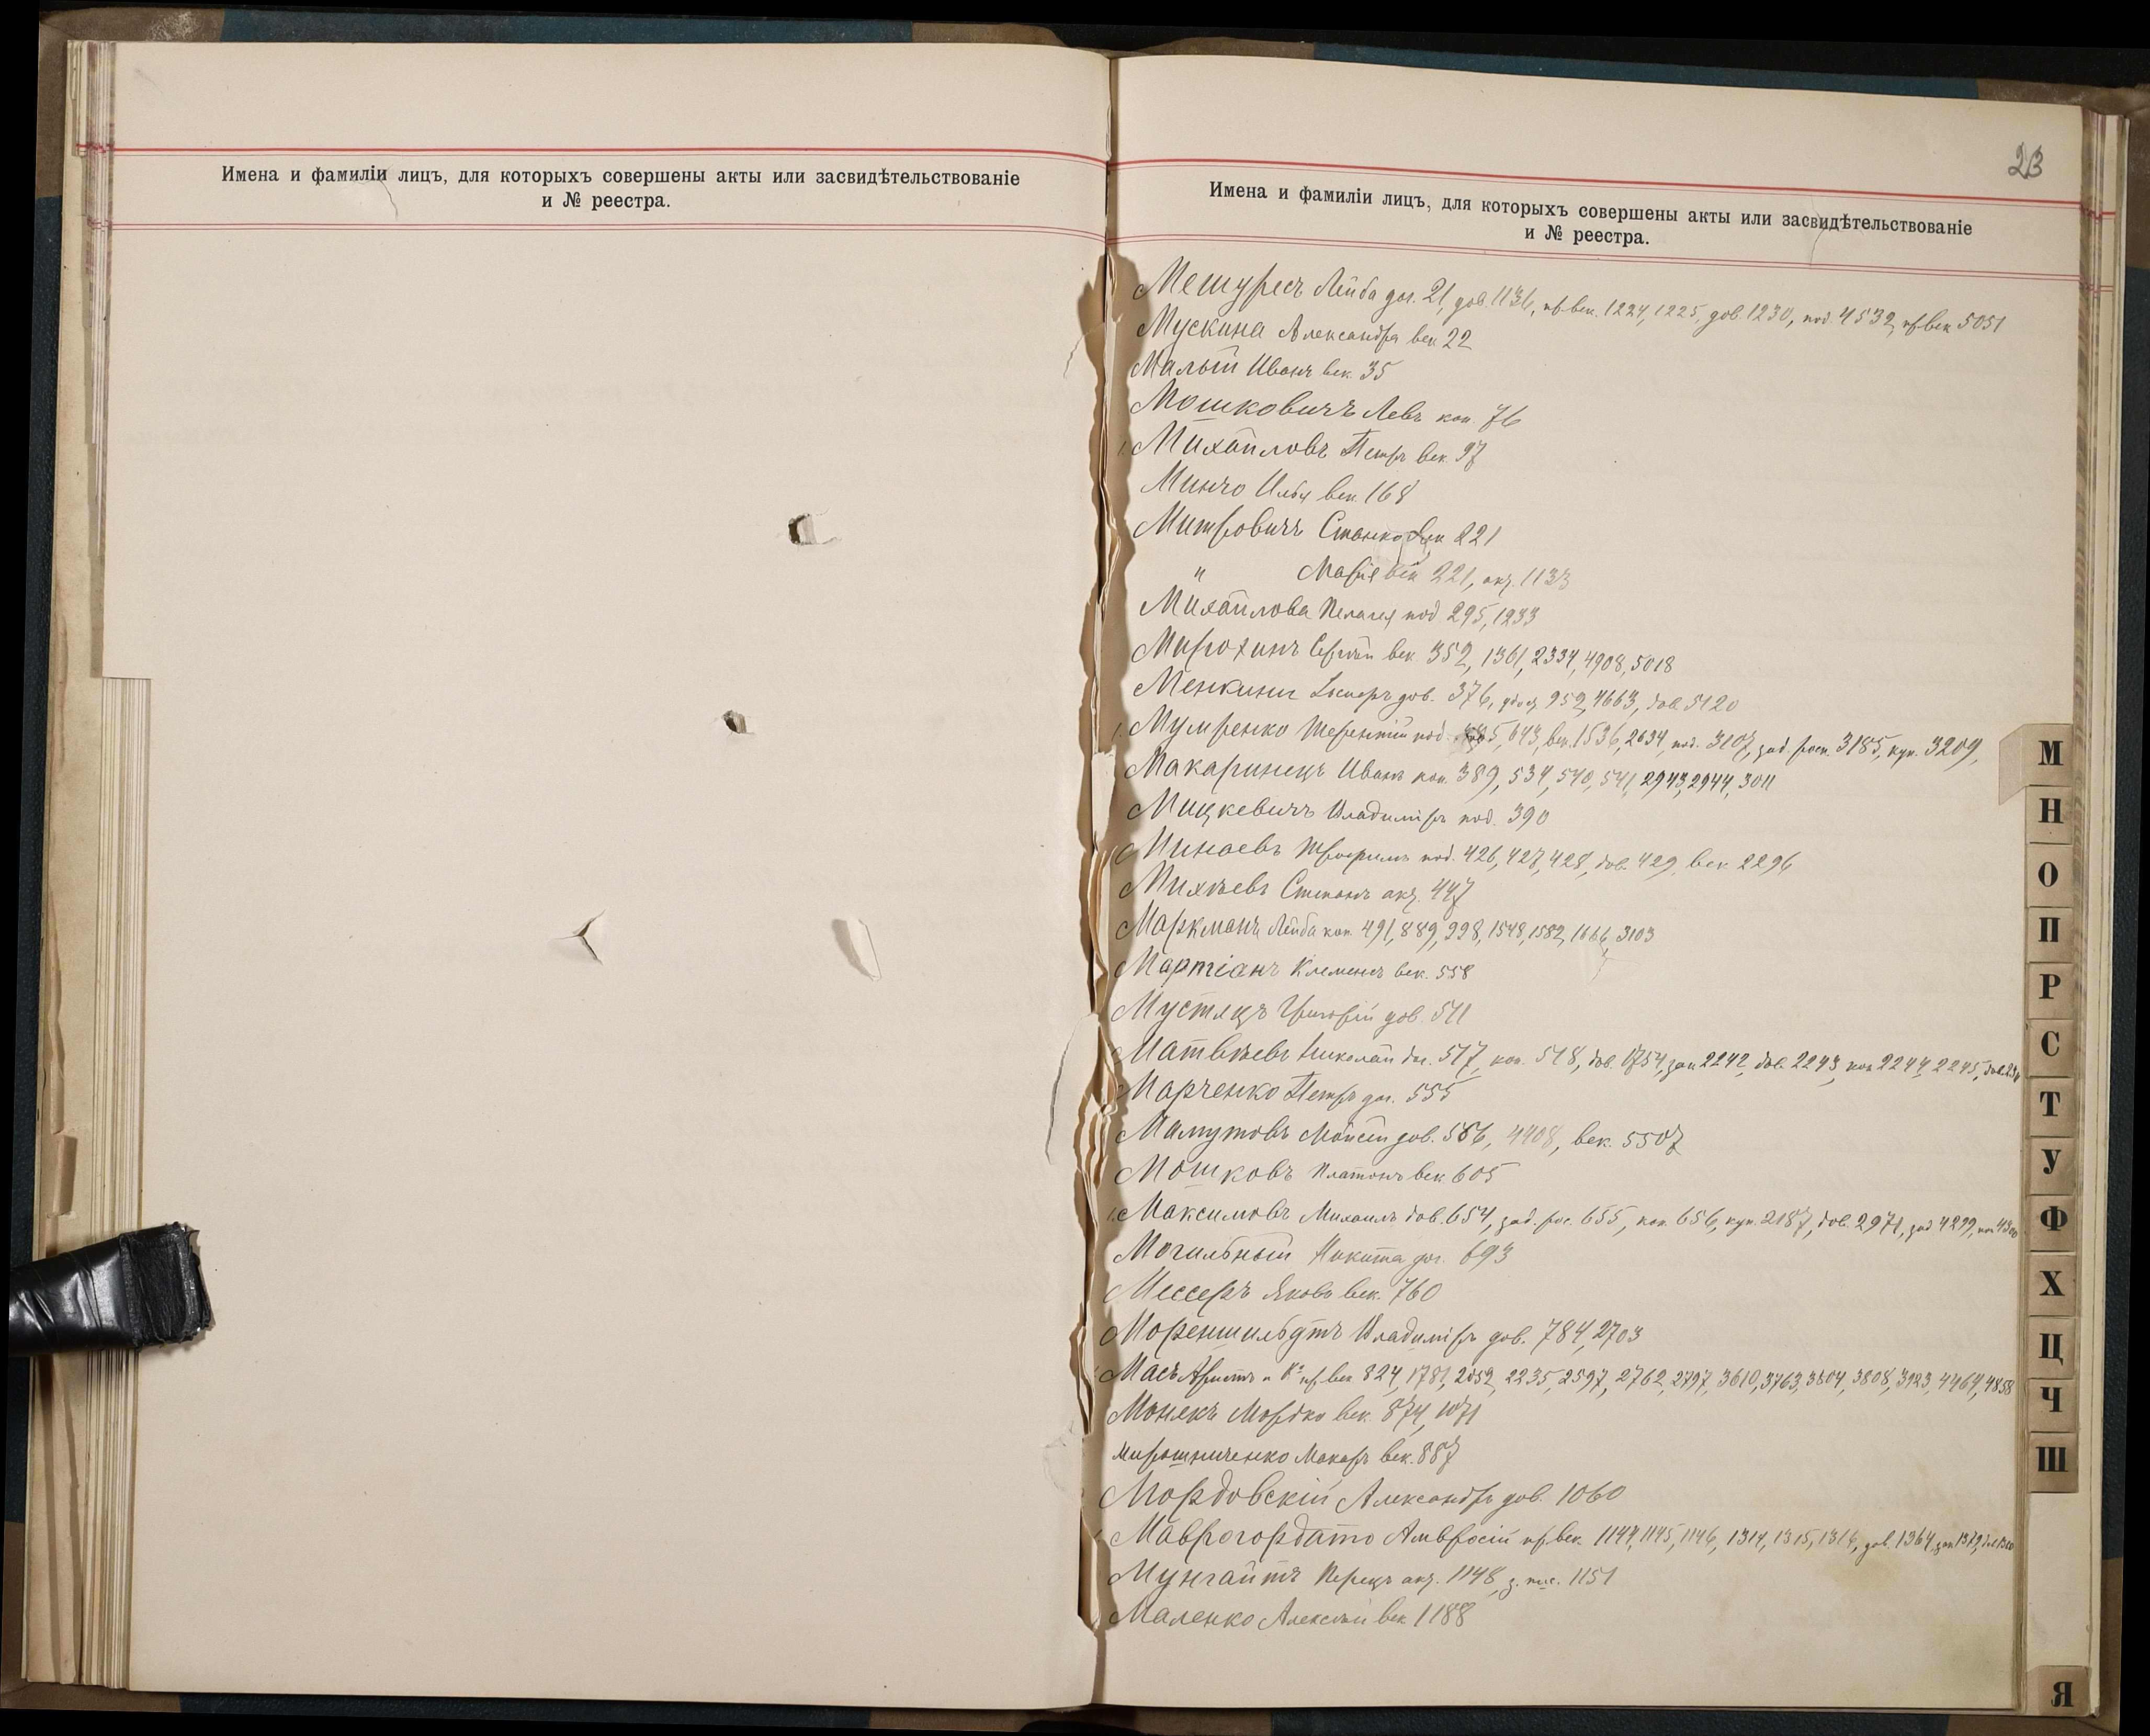 Имена и фамиліи лицъ, для которыхъ совершены акты или засвидѣтельствованіе
и № реестра.
23
Имена и фамиліи лицъ, для которыхъ совершены акты или засвидѣтельствованіе
и № реестра.
Мешуресъ Лейба дог. 21, дов. 1136, пр. век. 1224, 1225, дов. 1230, под. 4532, пр. век 5051
Мускина Александра век 22
Малый Иванъ век. 35
Мошковичъ Левъ коп. 76
Михайловъ Петръ век. 97
Минчо Илья век. 168
Митровичъ Станко век 221
" Марія век 221, акц. 1133
Михайлова Пелагея под 295, 1233
Мирохинъ Сергѣй век. 352, 1361, 2334, 4908, 5018
Менкини дов. 376, 952, 4663, дов 5120
Мумренко Терентій под. 643, век. 1536, 2634, под. 3107, зад. росп. 3185, куп. 3209,
Макаринецъ Иванъ коп. 389, 534, 540, 541, 2943, 2944, 3011
Мицкевичъ Владиміръ под. 390
Минаевъ Трофимъ под. 426, 427, 428, дов. 429, век 2296
Михѣевъ Степанъ акц. 447
Маркманъ Лейба коп. 491, 889, 998, 1548, 1582, 1666, 3103
Мартіанъ Клеменъ век. 558
Мустяцъ Григорій дов. 511
Матвѣевъ Николай дог. 517, коп. 518, дов. 1754, зап 2242, дов. 2243, коп 2244, 2245,
Марченко Петръ дог. 555
Мамутовъ Мойсей дов. 586, 4408, век. 5507
Мошковъ Платонъ век 605
Максимовъ Михаилъ дов. 654, зад. рос. 655, коп. 656, куп. 2187, дов. 2971, зад 4299, коп 4300
Могильный Никита дог. 693
Мессеръ Яковъ век. 760
Мореншильдтъ Владиміръ дов. 784, 2703
Масъ Аристъ и Кº пр. век 824, 1781, 2052, 2235, 2597, 2762, 2797, 3610, 3763, 3804, 3808, 3923, 4464, 4858
Монякъ Мордко век. 874, 1071
Мирошниченко Макаръ век. 887
Мордовскій Александръ дов. 1060
Маврогордато Амвросій пр. век. 1144, 1145, 1146, 1314, 1315, 1316, дов. 1364, зап 1379,
Мунгайтъ Перецъ акц. 1148, з. пис. 1151
Маленко Алексѣй век 1188
М
Н
О
П
Р
С
Т
У
Ф
Х
Ц
Ч
Ш
Я